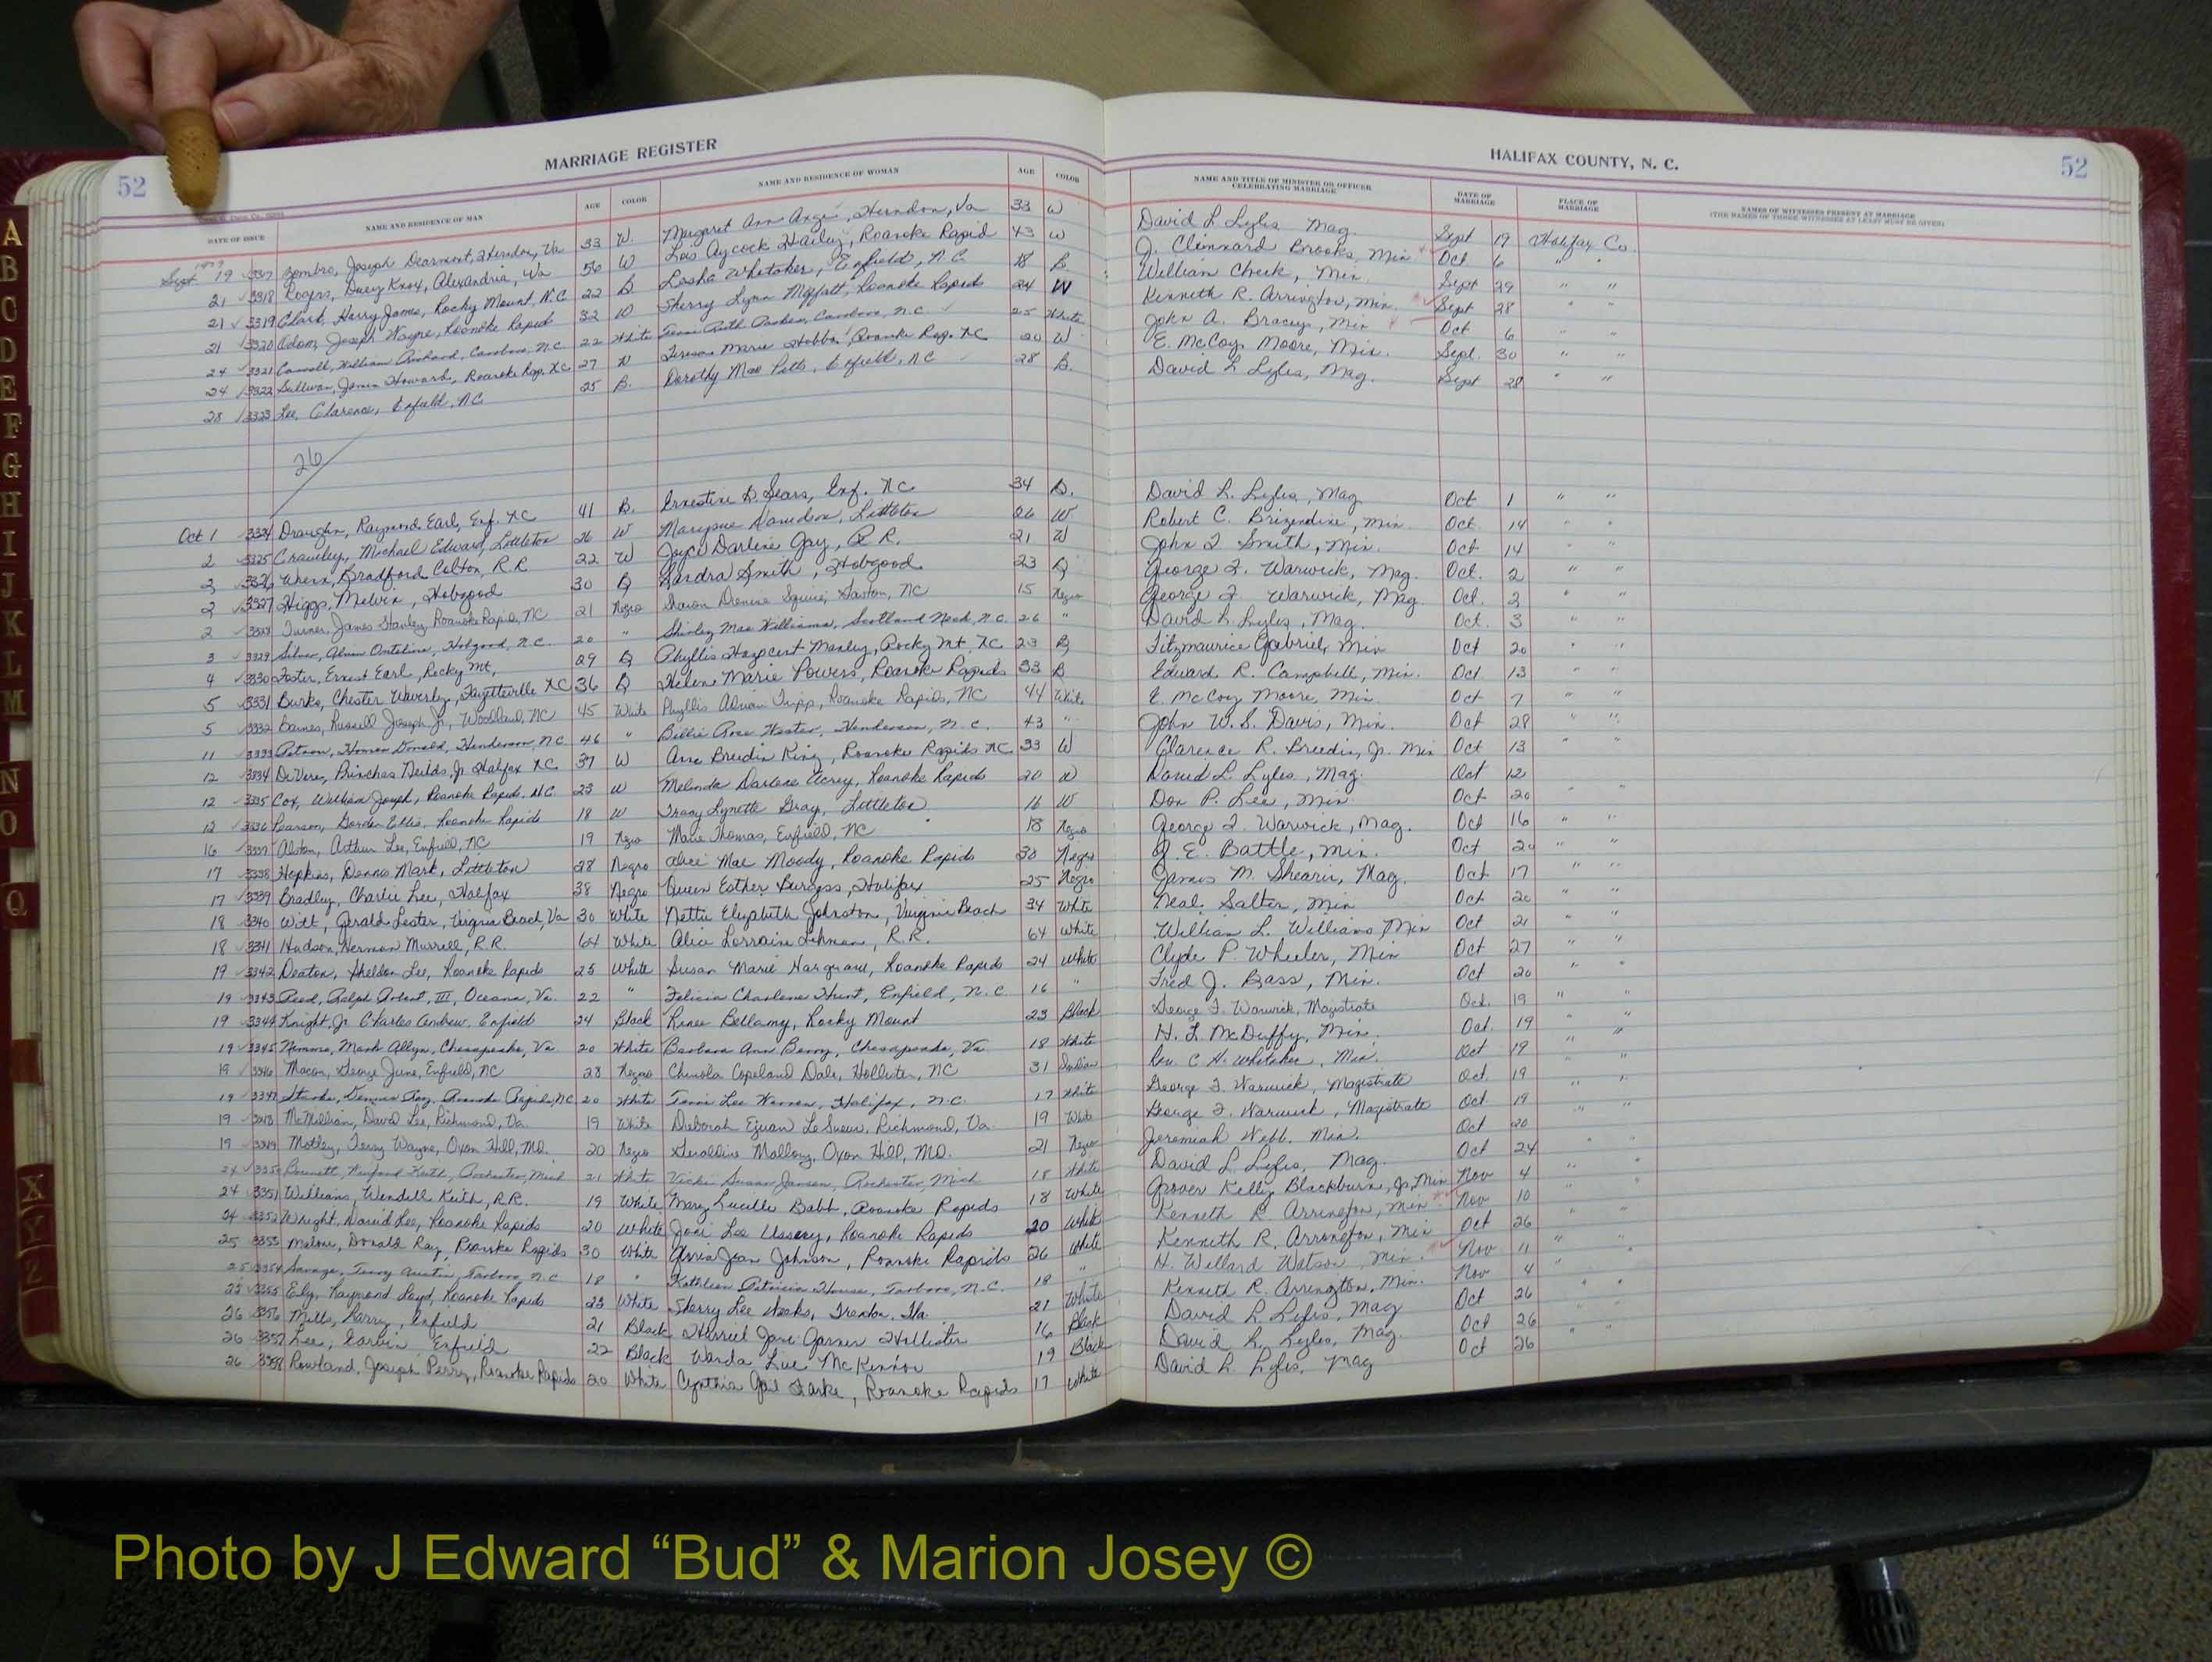 MARRIAGE REGISTER
HALIFAX COUNTY, N. C.
52
52
DATE OF ISSUE
NAME AND RESIDENCE OF MAN
AGE
COLOR
NAME AND RESIDENCE OF WOMAN
AGE
COLOR
NAME AND TITLE OF MINISTER OR OFFICER CELEBRATING MARRIAGE
DATE OF MARRIAGE
PLACE OF MARRIAGE
NAMES OF WITNESSES PRESENT AT MARRIAGE
(THE NAMES OF THOSE WITNESSES AT LEAST MUST BE GIVEN)
Sept 19 Joseph Herndon, Va 33 W. Margaret Ann Herndon, Va 33 W David L. Lyles Mag. Sept 19 Halifax Co.
21 3318 Rogers, Knox, Alexandria, Va 56 W Lois Aycock Hailey, Roanoke Rapid 43 W J. Brooks, Min Oct 6 " "
21 3319 Clark, Harry James, Rocky Mount, N.C. 22 B Whitaker, Enfield, N.C. 18 B. William Cheek, Min. Sept 29 " "
21 3320 Joseph Wayne, Roanoke Rapids 32 W Sherry Lynn Moffatt, Roanoke Rapids 24 W Kenneth R. Arrington, Min. Sept 28 " "
24 3321 William N.C. 22 White Ruth N.C. 25 White John A. Bracey, Min Oct 6 " "
24 3322 Sullivan, James Howard, Roanoke Rap. N.C 27 W Teresa Marie Roanoke Rap. NC 20 W E. McCoy Moore, Min. Sept. 30 " "
28 3323 Lee, Clarence, Enfield, NC 25 B. Dorothy Mae Pitts, Enfield, NC 28 B. David L Lyles, Mag. Sept 28 " "
26
Oct 1 3324 Draughn, Raymond Earl, Enf. NC 41 B. Ernestine D. Sears, Enf. NC 34 B. David L. Lyles, Mag Oct 1 " "
2 3325 Crawley, Michael Edward, Littleton 26 W Littleton 26 W Robert C. Brizendine, Min. Oct. 14 " "
2 3326 Bradford Colton, R.R. 22 W Joyce Darline Gay, R.R. 21 W John Smith, Min. Oct 14 " "
2 3327 Higgs, Melvin, Hobgood 30 B Sandra Smith, Hobgood 23 B George F. Warwick, Mag. Oct. 2 " "
2 3328 Turner, James Stanley, Roanoke Rapids, NC 21 Negro Sharon Denise Squire, Gaston, NC 15 Negro George F. Warwick, Mag. Oct. 2 " "
3 3329 Silver, Hobgood, N.C. 20 " Shirley Mae Williams, Scotland Neck, N.C. 26 " David L. Lyles, Mag. Oct. 3 " "
4 3330 Foster, Ernest Earl, Rocky Mt, 29 B Phyllis Manley, Rocky Mt, NC 23 B Fitzmaurice Gabriel, Min Oct 20 " "
5 3331 Burke, Chester Waverly, Fayetteville NC 36 B Helena Marie Powers, Roanoke Rapids 33 B Edward R. Campbell, Min. Oct 13 " "
5 3332 Barnes, Russell Joseph Jr, Woodland, NC 45 White Phyllis Tripp, Roanoke Rapids, NC 44 White E. McCoy Moore, Min. Oct 7 " "
11 3333 Donald, Henderson, NC 46 " Billie Rose Hester, Henderson, N.C. 43 " John W.S. Davis, Min. Oct 28 " "
12 3334 Jr Halifax NC 37 W Ann Breedin King, Roanoke Rapids NC 33 W Clarence R. Breedin, Jr. Min Oct 13 " "
12 3335 Cox, William Joseph, Roanoke Rapids, N.C. 23 W Melinda Darlene Roanoke Rapids 20 W David L. Lyles, Mag. Oct 12
12 3336 Pearson, Gordon Ellis, Roanoke Rapids 18 W Tracy Lynette Gray, Littleton 16 W Don P. Lee, Min. Oct 20 " "
16 3337 Alston, Arthur Lee, Enfield, NC 19 Negro Marie Thomas, Enfield, NC 18 Negro George F. Warwick, Mag. Oct 16 " "
17 3338 Hopkins, Dennis Mark, Littleton 28 Negro Alice Mae Moody, Roanoke Rapids 30 Negro J. E. Battle, Min. Oct 20 " "
17 3339 Bradley, Charlie Lee, Halifax 38 Negro Queen Esther Burgess, Halifax 25 Negro James M. Shearin, Mag. Oct 17 " "
18 3340 Witt, Gerald Lester, Virginia Beach, Va 30 White Nettie Elizabeth Johnston, Virginia Beach 34 White Neal Salter, Min Oct 20 " "
18 3341 Hudson, Herman Murrell, R.R. 64 White Alice Lorraine Lehman, R.R. 64 White William L. Williams, Min Oct 21 " "
19 3342 Deaton, Sheldon Lee, Roanoke Rapids 25 White Susan Marie Roanoke Rapids 24 White Clyde P. Wheeler, Min Oct 27 " "
19 3343 Reed, Ralph Robert, III, Oceana, Va. 22 " Felicia Charlene Hunt, Enfield, N.C. 16 " Fred J. Bass, Min. Oct 20 " "
19 3344 Knight, Jr Charles Andrew, Enfield 24 Black Renee Bellamy, Rocky Mount 23 Black George F. Warwick, Magistrate Oct. 19 " "
19 3345 Nimmo, Mark Allyn, Chesapeake, Va 20 White Barbara Ann Berry, Chesapeake, Va 18 White H. L McDuffy, Min. Oct. 19 " "
19 3346 Macon, George June, Enfield, NC 23 Negro Copeland Dale, Hollister, NC 31 Indian Rev. C H. Whitaker, Min. Oct 19 " "
19 3347 Dennis Ray, Roanoke Rapids, NC 20 White Terri Lee Warren, Halifax, N.C. 17 White George F. Warwick, Magistrate Oct. 19 " "
19 3348 McMillian, David Lee, Richmond, Va. 19 White Deborah LeSueur, Richmond, Va. 19 White George F. Warwick, Magistrate Oct. 19 " "
19 3349 Motley, Terry Wayne, Oxon Hill, MD. 20 Negro Geraldine Mallory, Oxon Hill, MD. 21 Negro Jeremiah Webb. Min. Oct 20
24 3350 Rochester, Mich 21 White Vickie Susan Jansen, Rochester, Mich 18 White David L. Lyles, Mag. Oct 24 " "
24 3351 Williams, Wendell Keith, R.R. 19 White Mary Lucille Babb, Roanoke Rapids 18 White Grover Kelly Blackburn, Jr, Min Nov 4 " "
24 3352 Wright, David Lee, Roanoke Rapids 20 White Joni Lee Ussery, Roanoke Rapids 20 White Kenneth R. Arrington, Min Nov 10 " "
25 3353 Malone, Donald Ray, Roanoke Rapids 30 White Jean Johnson, Roanoke Rapids 26 White Kenneth R. Arrington, Min Oct 26 " "
25 3354 Savage, Terry Austin, Tarboro, N.C 18 " Kathleen Patricia House, Tarboro, N.C. 18 " H. Willard Watson, Min. Nov 11 " "
25 3355 Ely, Raymond Loyd, Roanoke Rapids 23 White Sherry Lee Weeks, Trenton, Fla. 21 White Kenneth R. Arrington, Min. Nov 4 " "
26 3356 Mills, Larry, Enfield 21 Black Harriel Jane Garner Hollister 16 Black David L. Lyles, Mag Oct 26 " "
26 3357 Lee, Enfield 22 Black Wanda Lue McKinnon 19 Black David L. Lyles, Mag. Oct 26 " "
26 3358 Rowland, Joseph Perry, Roanoke Rapids 20 White Cynthia Gail Starke, Roanoke Rapids 17 White David L. Lyles, Mag Oct 26
A
B
C
D
E
F
G
H
I
J
K
L
M
N
O
Q
X
Y
Z
Photo by J Edward “Bud” & Marion Josey ©